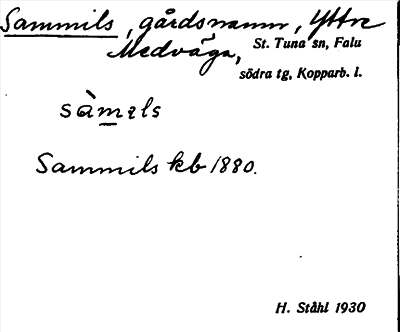 Sammils, gårdsnamn, Yttre
Medväga, St. Tuna sn, Falu
södra tg, Kopparb. l.
sàmɩls
Sammils kb 1880.
H. Ståhl 1930